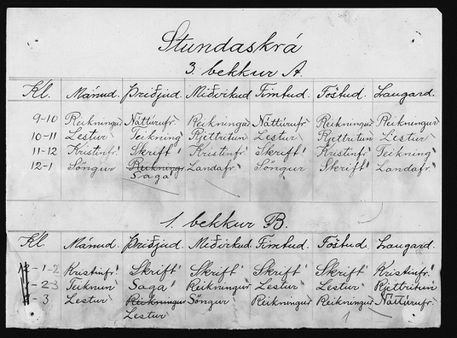 Stundaskrá
3. bekkur A.
Kl. Mánud. Þriðjud. Miðvikud. Fimtud. Föstud. Laugard.
9-10 Reikningur Náttúrufr. Reikningur Náttúrufr. Reikningur Reikningur
10-11 Lestur Teikning Rjettritun Lestur Rjettritun Lestur
11-12 Kristinfr. Skrift Kristinfr. Skrift Kristinfr. Teikning
12-1 Söngur Reikningur Landafr. Söngur Skrift Landafr.
Saga
1. bekkur B.
Kl. Mánud. Þriðjud. Miðvikud. Fimtud. Föstud. Laugard.
1-2 Kristinfr. Skrift Skrift Skrift Skrift Kristinfr.
2-3 Teiknun Saga Reikningur Lestur Lestur Rjettritun
3 Lestur Reikningur Söngur Reikningur Reikningur Náttúrufr.
Lestur